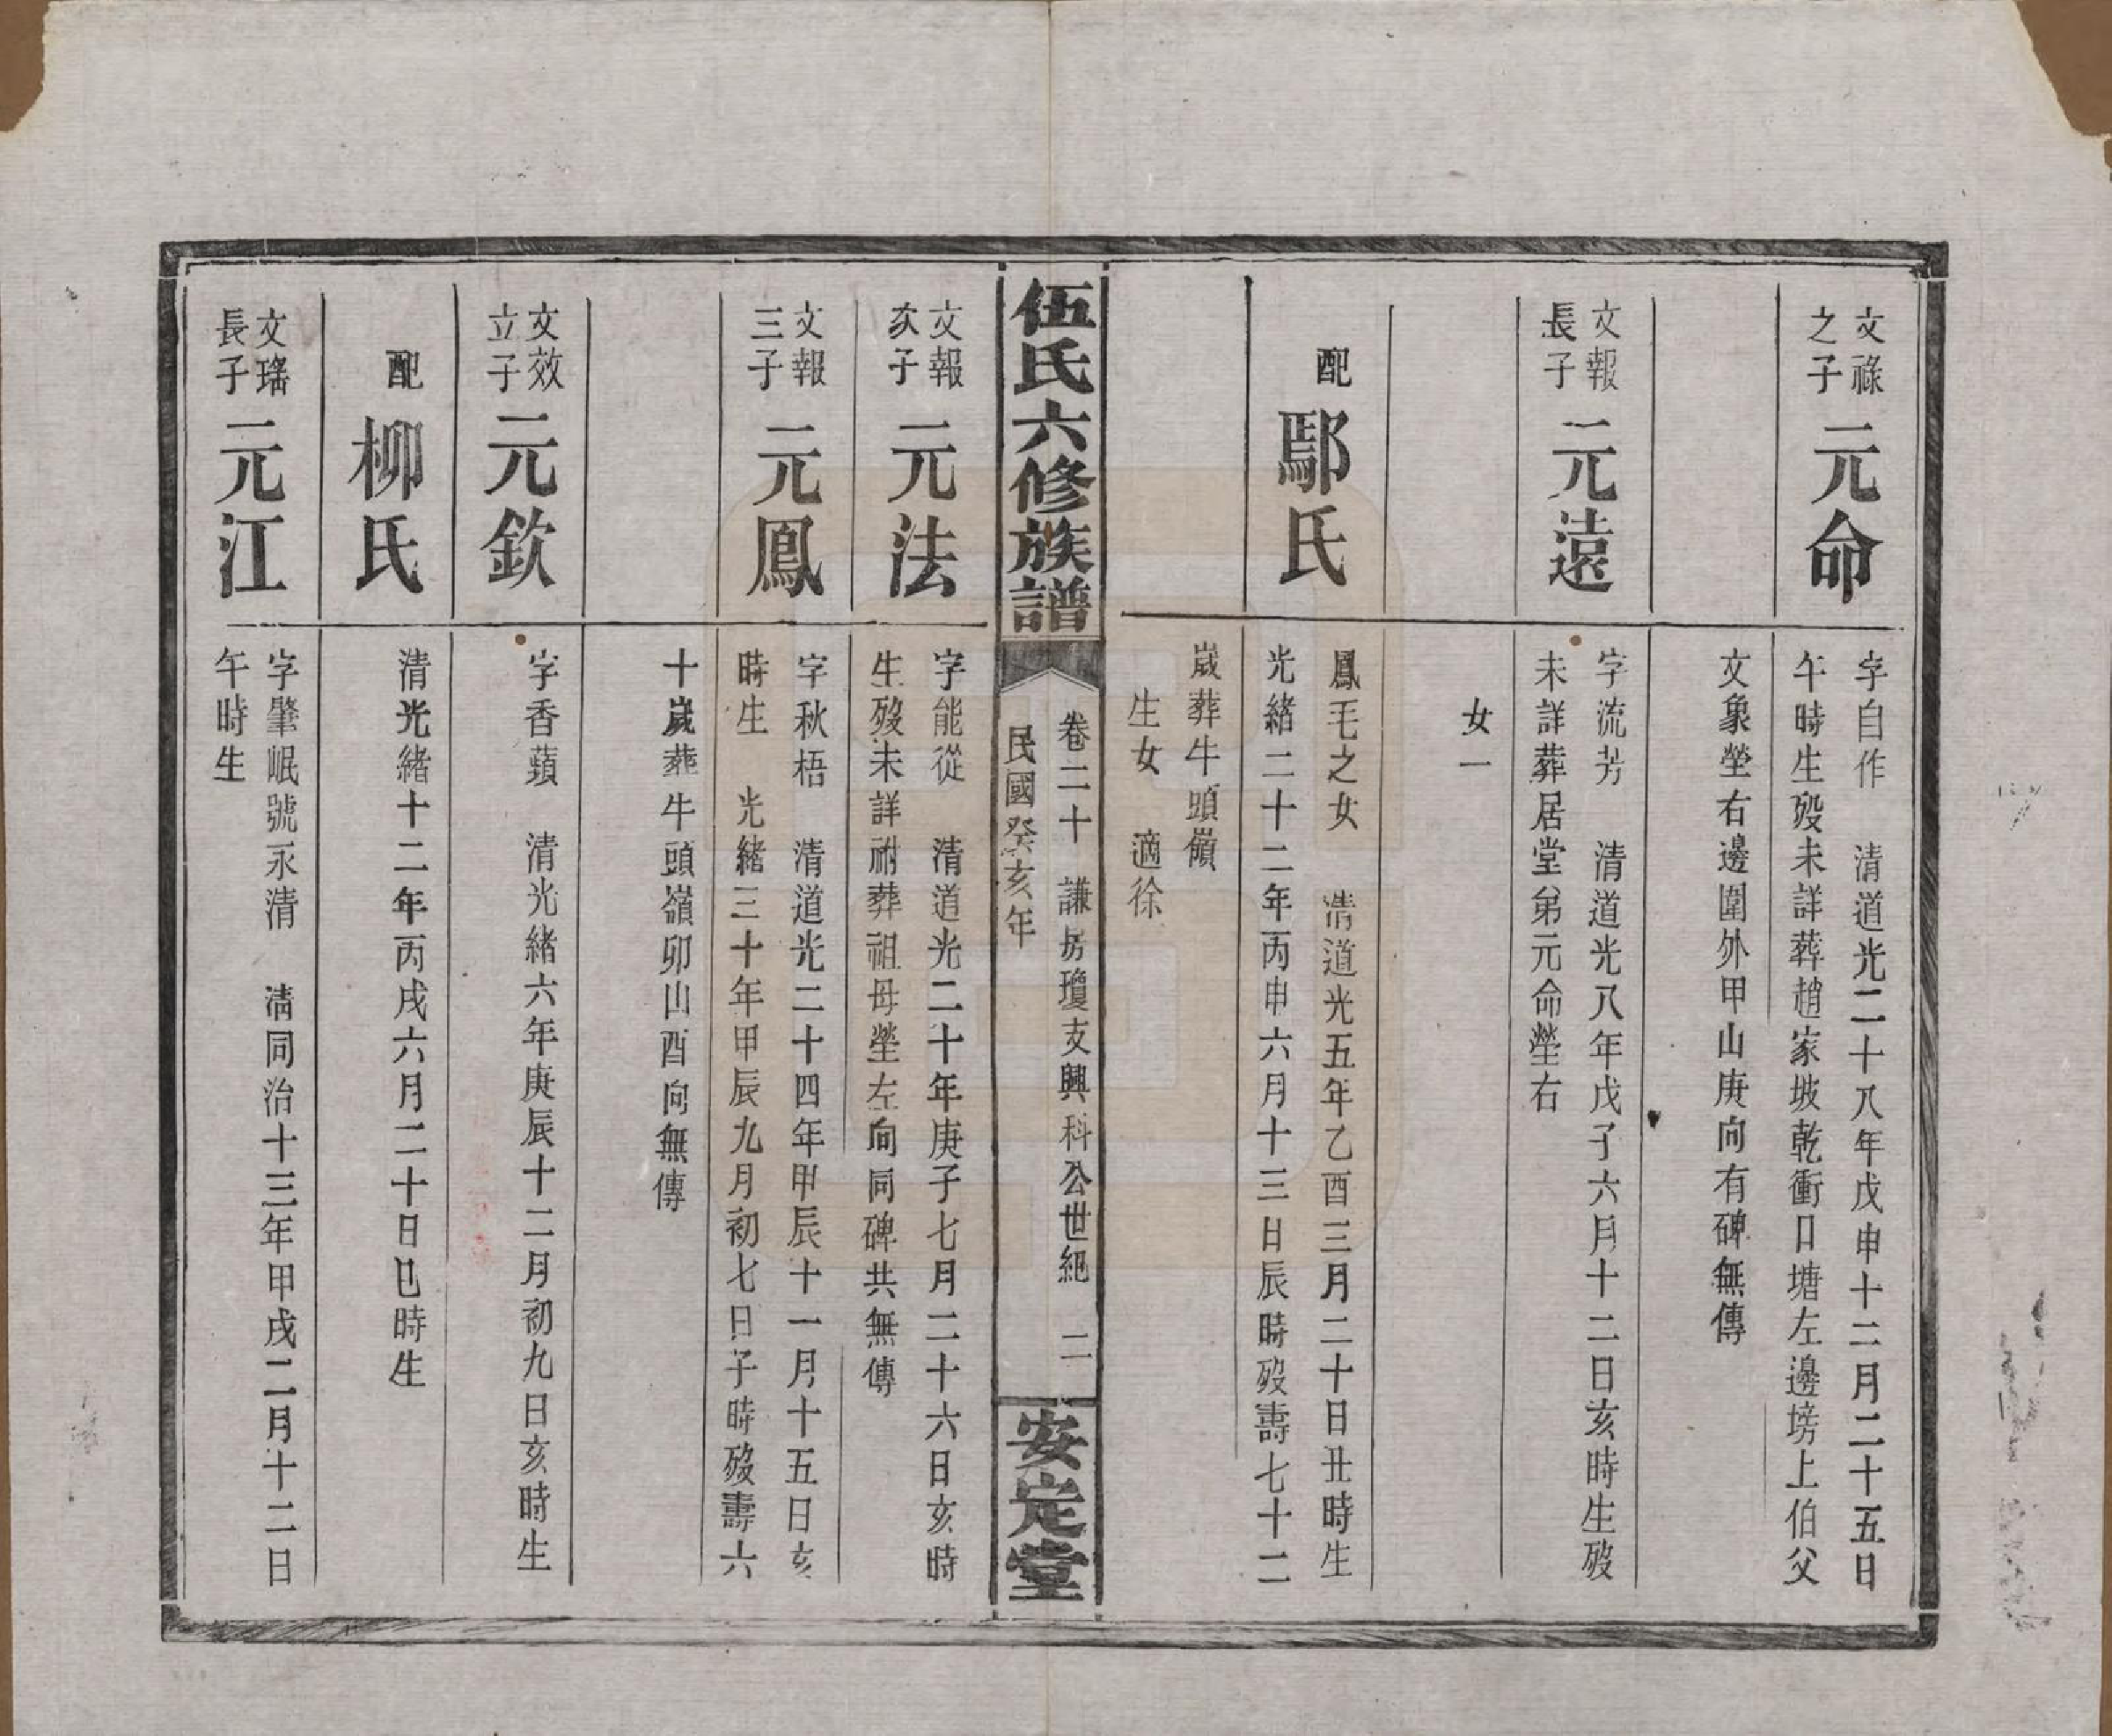 文祿
之子
元命
字自作　清道光二十八年戊申十二月二十五日
午時生殁未詳葬趙家坡乾衝口塘左邊塝上伯父
文象塋右邊圍外甲山庚向有碑無傳
文報
長子
元遠
字流芳　清道光八年戊子六月十二日亥時生殁
未詳葬居堂弟元命塋右
女一
配
鄢氏
鳳毛之女　清道光五年乙酉三月二十日丑時生
光緒二十二年丙申六月十三日辰時殁壽七十二
歲葬牛頭嶺
生女　適徐
伍氏六修族譜
卷二十　謙房瓊支興科公世絕　二
民國癸亥年
安定堂
文報
次子
元法
字能從　清道光二十年庚子七月二十六日亥時
生殁未詳祔葬祖母塋左向同碑共無傳
文報
三子
元鳳
字秋梧　清道光二十四年甲辰十一月十五日亥
時生　光緒三十年甲辰九月初七日子時殁壽六
十歲葬牛頭嶺卯山酉向無傳
文效
立子
元欽
字香蘋　清光緒六年庚辰十二月初九日亥時生
配
柳氏
清光緒十二年丙戌六月二十日巳時生
文璠
長子
元江
字肇岷號永清　清同治十三年甲戌二月十二日
午時生